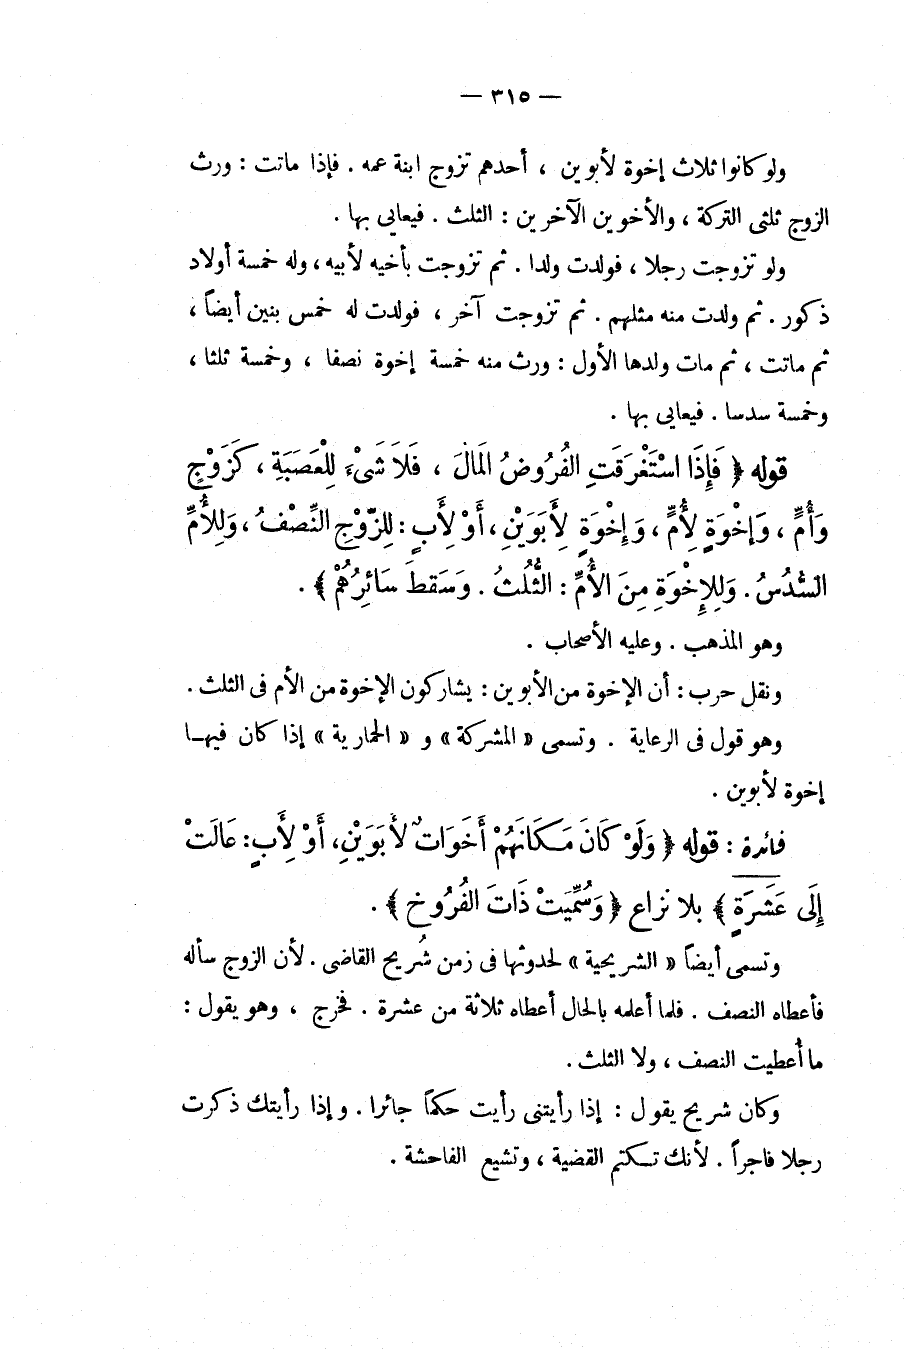 — ٣١٥ —
ولو كانوا ثلاث إخوة لأبوين ، أحدهم تزوج ابنة عمه . فإذا ماتت : ورث
الزوج ثلثى التركة ، والأخوين الآخرين : الثلث . فيعايى بها .
ولو تزوجت رجلا ، فولدت ولدا . ثم تزوجت بأخيه لأبيه ، وله خمسة أولاد
ذكور . ثم ولدت منه مثلهم . ثم تزوجت آخر ، فولدت له خمس بنين أيضاً ،
ثم ماتت ، ثم مات ولدها الأول : ورث منه خمسة إخوة نصفا ، وخمسة ثلثا ،
وخمسة سدسا . فيعايى بها .
قوله ﴿ فَإِذَا اسْتَغْرَقَتِ الفُرُوضُ المَالَ ، فَلاَ شَىْءَ لِلْعَصَبَةِ ، كَزَوْجٍ
وَأُمٍّ ، وَإِخْوَةٍ لِأُمٍّ ، وَإِخْوَةٍ لِأَبَوَيْنِ ، أَوْ لِأَبٍ : لِلزَّوْجِ النِّصْفُ ، وَلِلأُمِّ
السُّدُسُ . وَلِلإِخْوَةِ مِنَ الأُمِّ : الثُّلُثُ . وَسَقَطَ سَائِرُهُمْ ﴾ .
وهو المذهب . وعليه الأصحاب .
ونقل حرب : أن الإخوة من الأبوين : يشاركون الإخوة من الأم فى الثلث .
وهو قول فى الرعاية . وتسمى « المشركة » و « الحمارية » إذا كان فيهـا
إخوة لأبوين .
فائدة : قوله ﴿ وَلَوْ كَانَ مَكَانَهُمْ أَخَوَاتٌ لأَبَوَيْنِ ، أَوْ لِأَبٍ : عَالَتْ
إِلَى عَشَرَةٍ ﴾ بلا نزاع ﴿ وَسُمِّيَتْ ذَاتَ الفُرُوخِ ﴾ .
وتسمى أيضاً « الشريحية » لحدوثها فى زمن شُريح القاضى . لأن الزوج سأله
فأعطاه النصف . فلما أعلمه بالحال أعطاه ثلاثة من عشرة . فخرج ، وهو يقول :
ما أُعطيت النصف ، ولا الثلث .
وكان شريح يقول : إذا رأيتنى رأيت حكماً جائرا . وإذا رأيتك ذكرت
رجلا فاجراً . لأنك تـكتم القضية ، وتشيع الفاحشة .